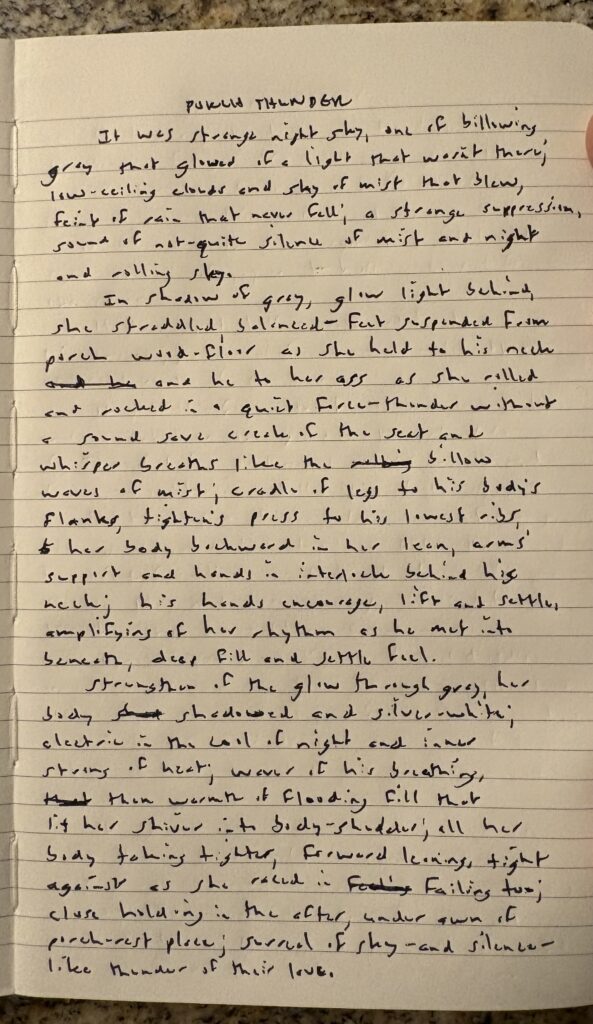 THUNDER
It was strange night sky, one of billowing
gray that glowed of a light that wasn't there;
low-ceiling clouds and sky of mist that blew,
feint of rain that never fell; a strange suppression,
sound of not-quite silence of mist and night
and rolling sky.
In shadow of gray, glow light behind,
she straddled balanced- feet suspended from
porch wood-floor as she held to his neck
and he to her ass as she rolled
and rocked in a quiet force-thunder without
a sound save creak of the seat and
whisper breaths like the billow
waves of mist; cradle of legs to his body's
flanks, tighten's press to his lowest ribs,
her body backward in her lean, arms'
support and hands in interlock behind his
neck; his hands encourage, lift and settle,
amplifying of her rhythm as he met into
beneath, deep fill and settle feel.
Strengthen of the glow through gray, her
body shadowed and silver-white;
electric in the cool of night and inner
strong of heat; waver of his breathing,
then warmth of flooding fill that
lit her shiver into body-shudder; all her
body taking tighter, forward leaning, tight
against as she raced in falling too;
close holding in the after, under own of
porch-rest place; surreal of sky-and silence-
like thunder of their love.